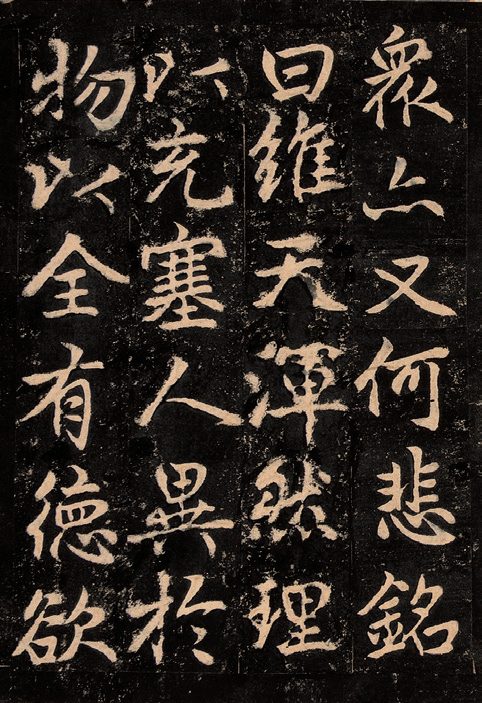 衆亦又何悲銘
曰維天渾然理
以充塞人異於
物以全有德欲